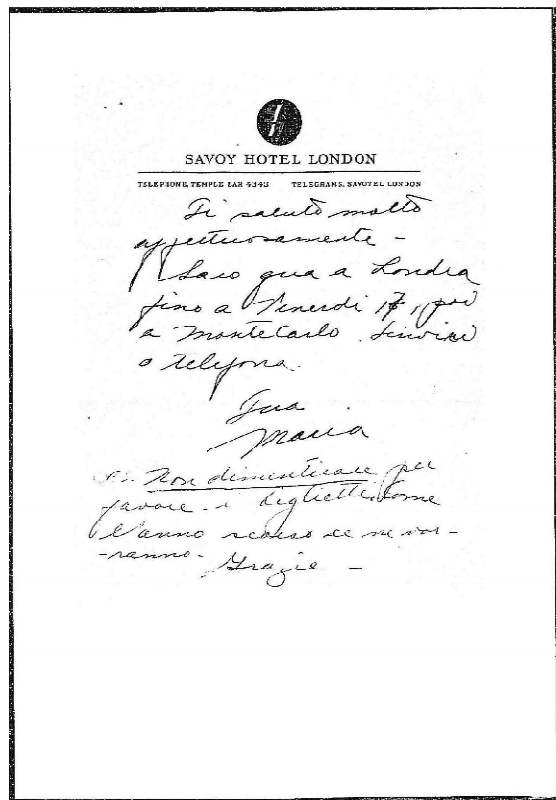 SAVOY HOTEL LONDON
TELEPHONE, TEMPLE BAR 4343 TELEGRAMS, SAVOTEL LONDON
Ti saluto molto
affettuosamente –
Saro qua a Londra
fino a Venerdi 17, poi
a MonteCarlo. Scrivici
o telefona.
Tua
Maria
P.S. Non dimenticare per
favore i biglietti come
l'anno scorso ce ne vor-
-ranno.
Grazie –